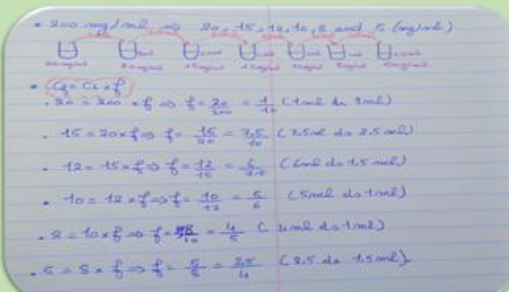 • 200 mg/ml ⇒ 20, 15, 12, 10, 8 and 5 (mg/ml)
200mg/ml 20mg/ml 15mg/ml 12mg/ml
• Cf = Ci × f
• 20 = 200 × f ⇒ f = 20/200 = 1/10 (1ml ds 9ml)
• 15 = 20 × f ⇒ f = 15/20 = 7,5/10 (7.5ml ds 2.5 ml)
• 12 = 15 × f ⇒ f = 12/15 = 6/7,5 (6ml ds 1,5 ml)
• 10 = 12 × f ⇒ f = 10/12 = 5/6 (5ml ds 1ml)
• 8 = 10 × f ⇒ f = 8/10 = 4/5 (4ml ds 1ml)
• 5 = 8 × f ⇒ f = 5/8 = 2,5/4 (2,5 ds 1,5ml).